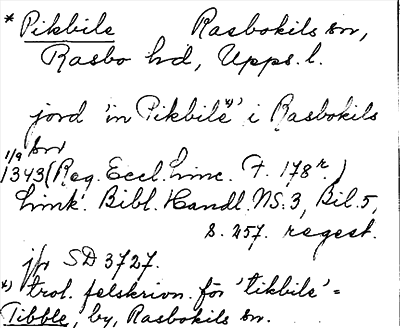 * Pikbile Rasbokils sn,
Rasbo hd, Upps. l.
jord 'in Pikbile*)' i Rasbokils
sn
1/9 1343 (Reg. Eccl. Linc. F. 178r.)
Link. Bibl. Handl. NS: 3, Bil. 5,
s. 257. regest.
jfr SD 3727.
*) trol. felskrivn. för 'tikbile' =
Tibble, by, Rasbokils sn.